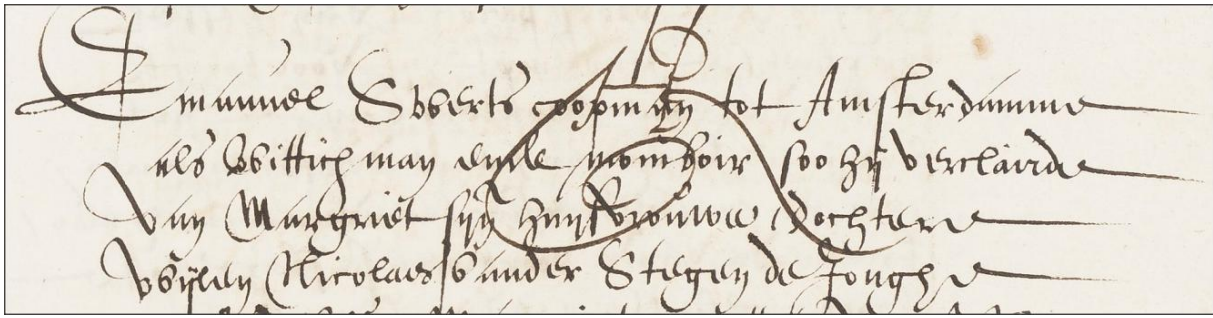 Emanuel Sweerts coopman tot Amsterdamme
als wittich man ende momboir soo hy verclairde
van Margriet syn huysvrouwe dochtere
wylen Nicolaes vander Stegen de Jonghe